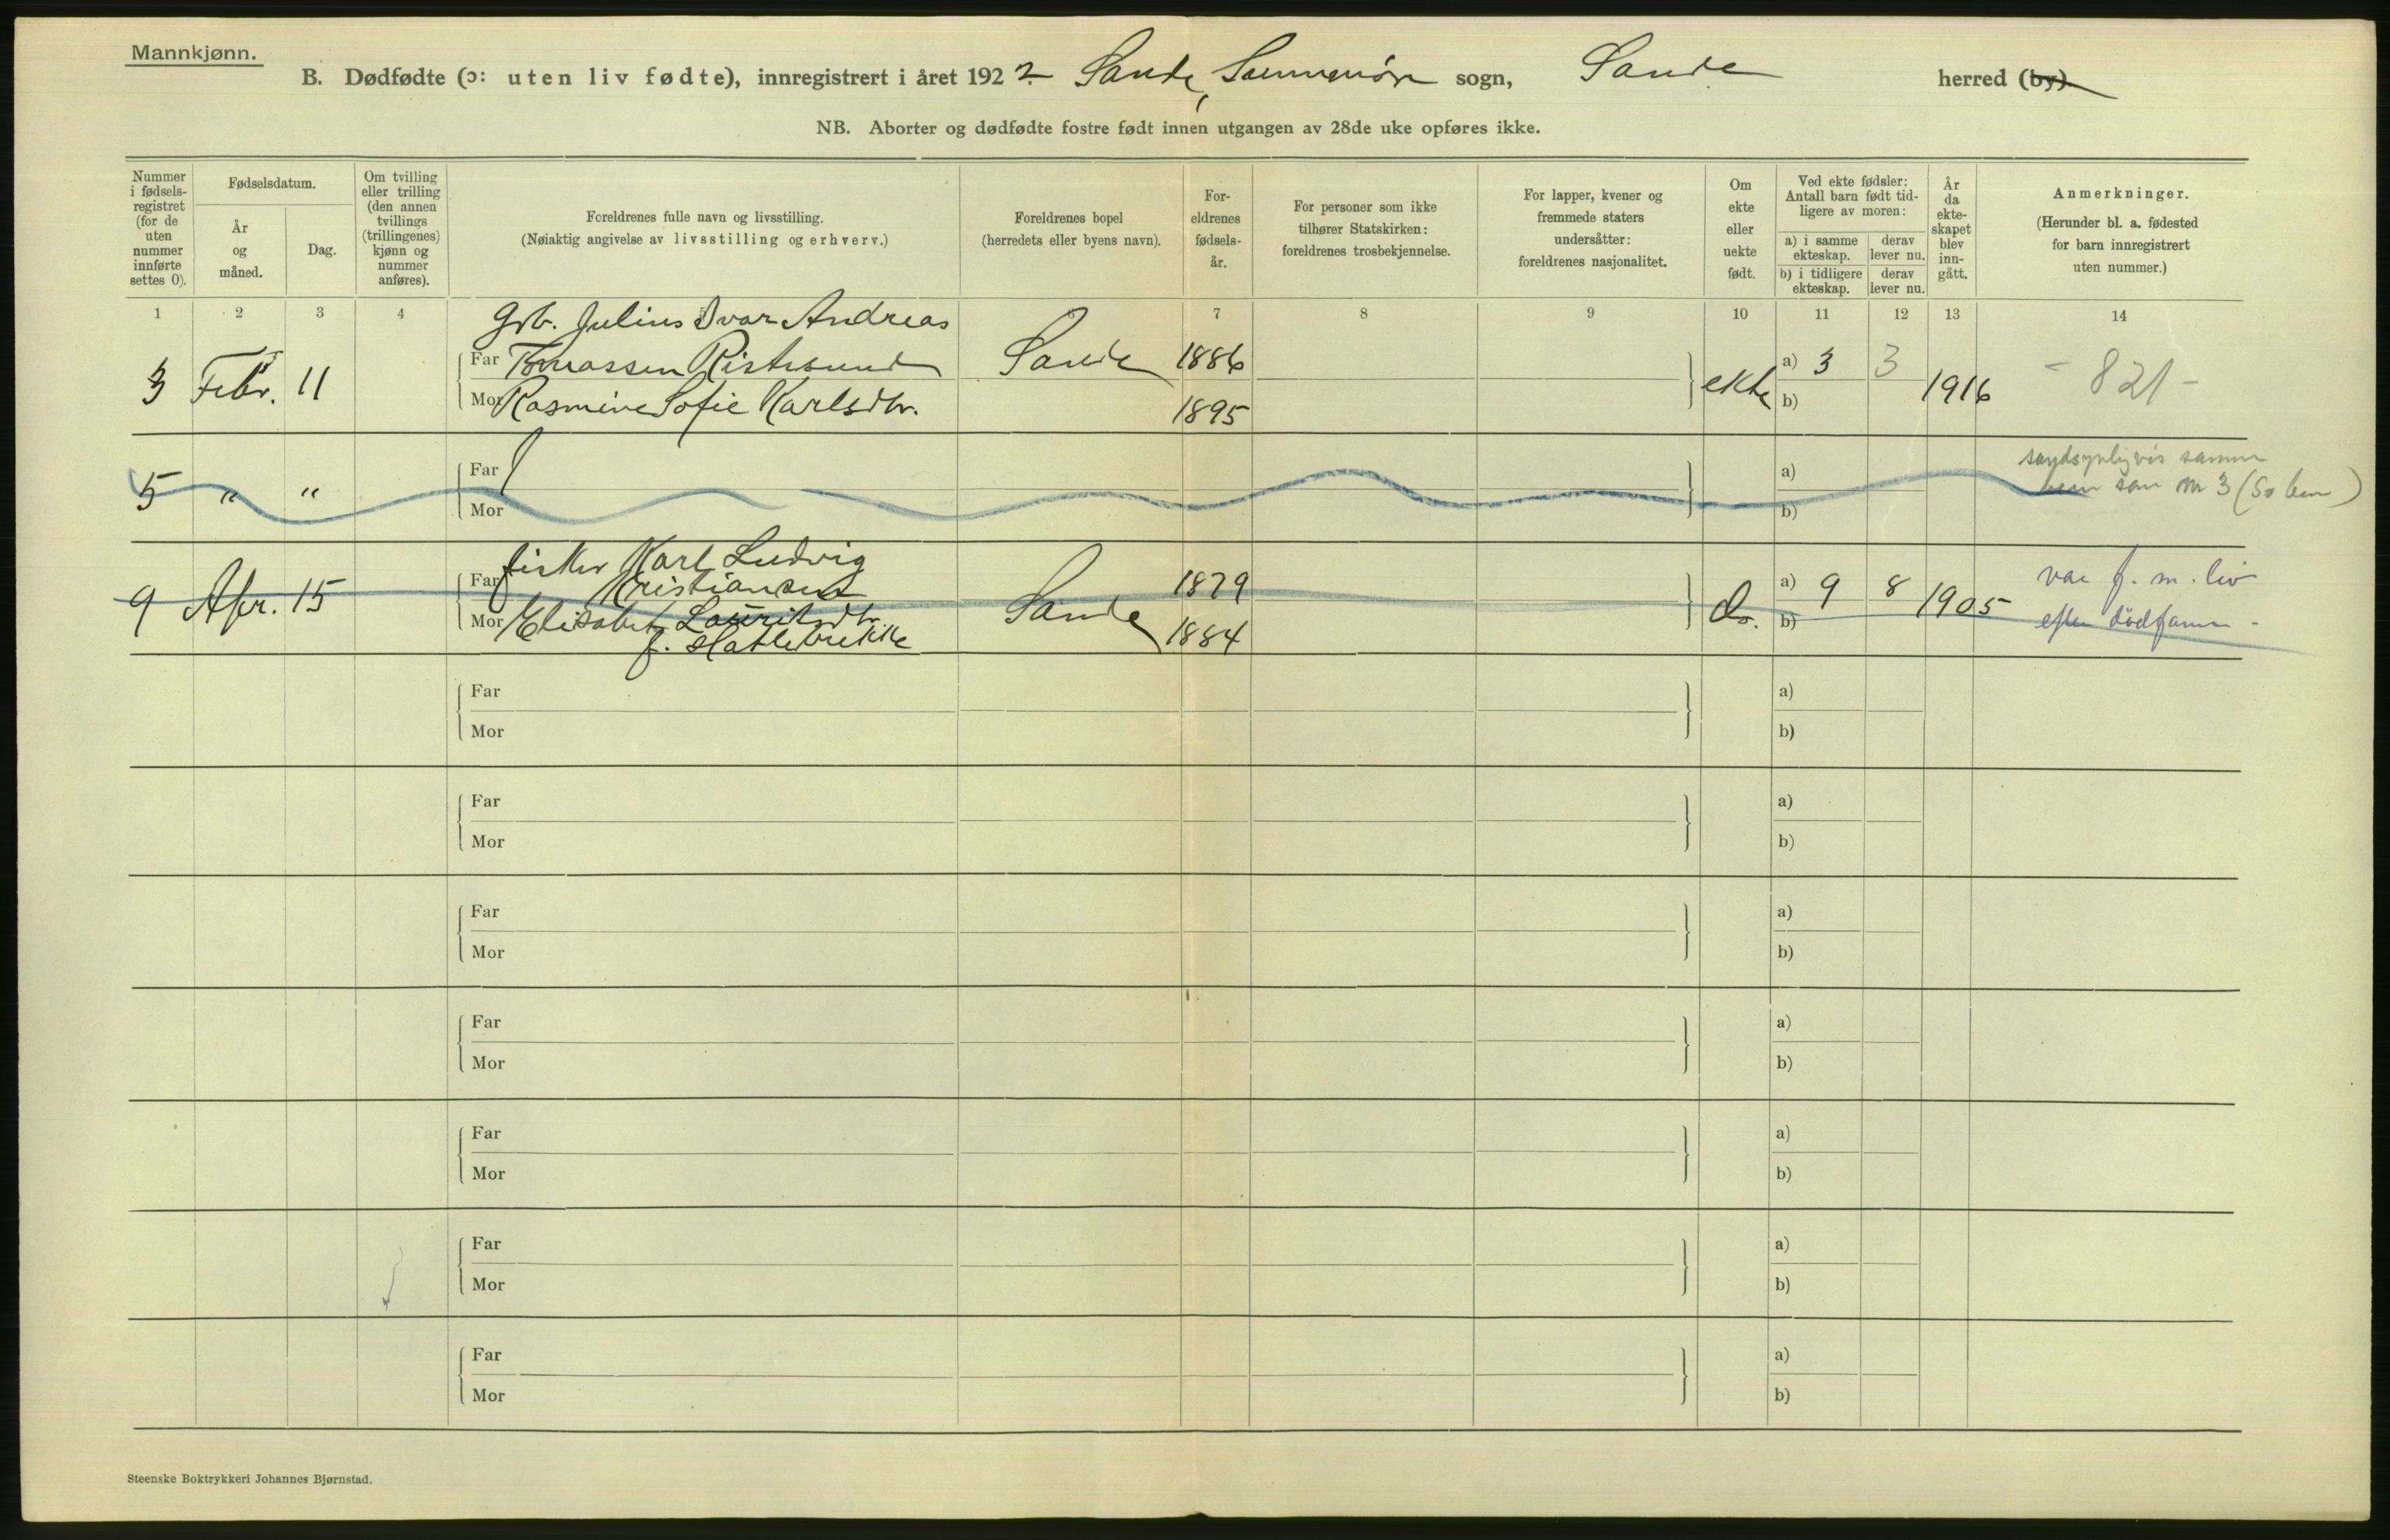 Mannkjønn.
B. Dødfødte (ɔ: uten liv fødte), innregistrert i året 1922 Sande, Sunnmøre sogn, Sande herred (by).
NB. Aborter og dødfødte fostre født innen utgangen av 28de uke opføres ikke.
Nummer i fødsels- registret (for de uten nummer innførte settes 0).
Fødselsdatum.
År og måned.
Dag.
Om tvilling eller trilling (den annen tvillings (trillingenes) kjønn og nummer anføres).
Foreldrenes fulle navn og livsstilling.
(Nøiaktig angivelse av livsstilling og erhverv.)
Foreldrenes bopel
(herredets eller byens navn).
For- eldrenes fødsels- år.
For personer som ikke tilhører Statskirken: foreldrenes trosbekjennelse.
For lapper, kvener og fremmede staters undersåtter: foreldrenes nasjonalitet.
Om ekte eller uekte født.
Ved ekte fødsler: Antall barn født tid- ligere av moren:
a) i samme ekteskap.
derav lever nu.
b) i tidligere ekteskap.
derav lever nu.
År da ekte- skapet blev inn- gått.
Anmerkninger.
(Herunder bl. a. fødested for barn innregistrert uten nummer.)
1 2 3 4 7 8 9 10 11 12 13 14
Grb. Julius Ivar Andreas
3 Febr. 11 Far Tomassen Ristesund Sande 1886 ekte a) 3 3 1916 - 821 -
Mor Rasmine Sofie Karlsdtr. 1895 b)
5 " " Far a) sandsynligvis samme
Mor b) som nr 3
fisker Karl Ludvig
9 Apr. 15 Far Kristiansen Sande 1879 do. a) 9 8 1905 var f. m. liv
Mor Elisabet Lauritsdtr. 1884 b) efter dødfanm -
f. Hatlebrekke
Far a)
Mor b)
Far a)
Mor b)
Far a)
Mor b)
Far a)
Mor b)
Far a)
Mor b)
Far a)
Mor b)
Far a)
Mor b)
Steenske Boktrykkeri Johannes Bjørnstad.